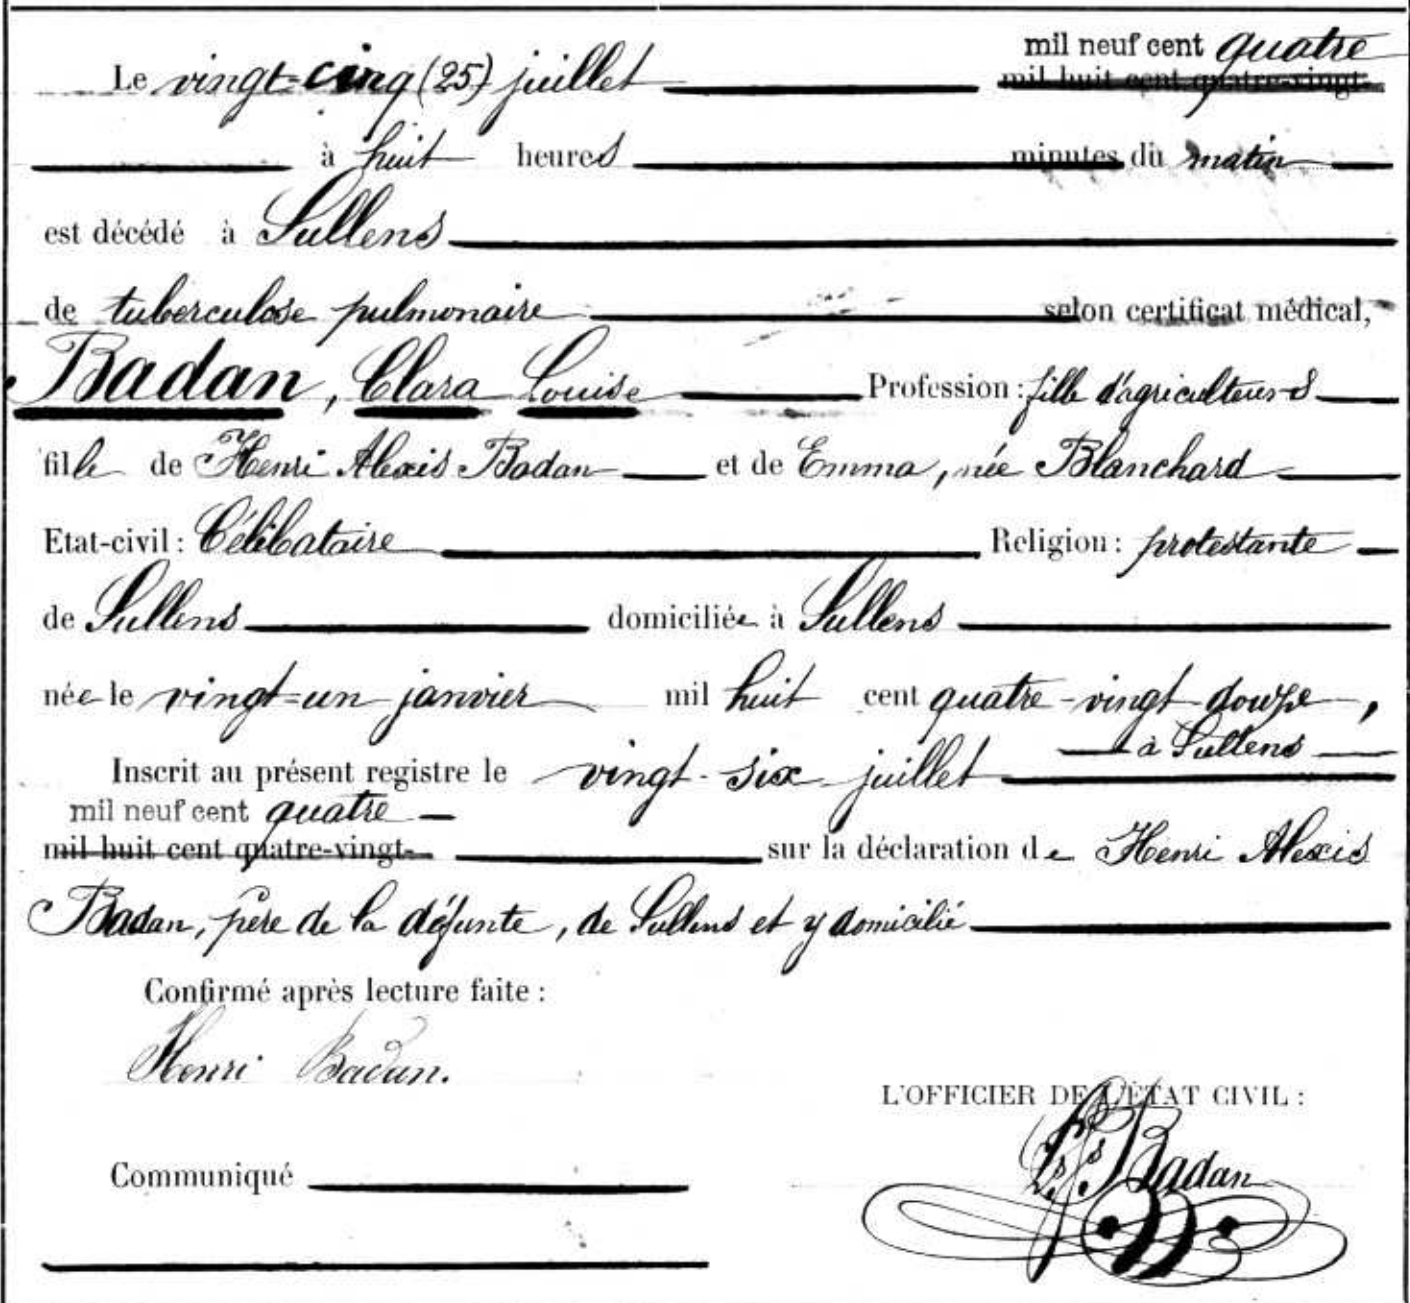 mil neuf cent quatre
Le vingt-cinq (25) juillet mil huit cent quatre-vingt-
à huit heures minutes du matin
est décédé à Sullens
de tuberculose pulmonaire selon certificat médical,
Badan, Clara Louise Profession : fille d'agriculteurs
fille de Henri Alexis Badan et de Emma, née Blanchard
Etat-civil : Célibataire Religion : protestante
de Sullens domiciliée à Sullens
née le vingt-un janvier mil huit cent quatre-vingt-douze,
à Sullens
Inscrit au présent registre le vingt-six juillet
mil neuf cent quatre
mil huit cent quatre-vingt- sur la déclaration de Henri Alexis
Badan, père de la défunte, de Sullens et y domicilié
Confirmé après lecture faite :
Henri Badan.
L'OFFICIER DE L'ÉTAT CIVIL :
Badan
Communiqué